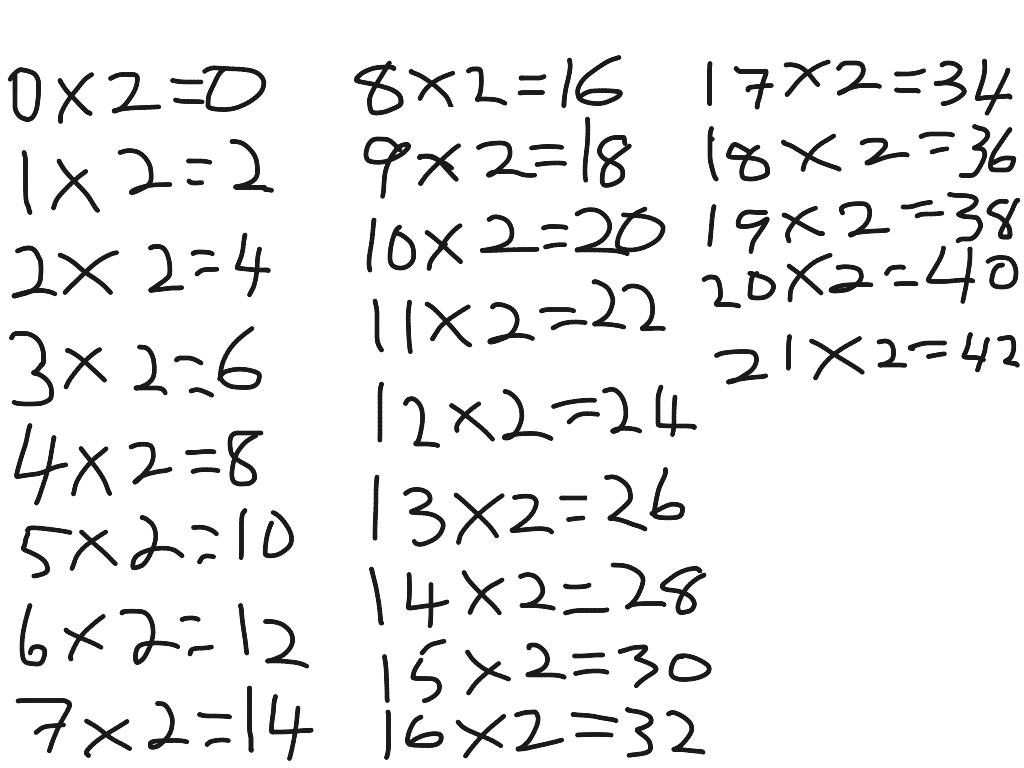 0×2=0
1×2=2
2×2=4
3×2=6
4×2=8
5×2=10
6×2=12
7×2=14
8×2=16
9×2=18
10×2=20
11×2=22
12×2=24
13×2=26
14×2=28
15×2=30
16×2=32
17×2=34
18×2=36
19×2=38
20×2=40
21×2=42